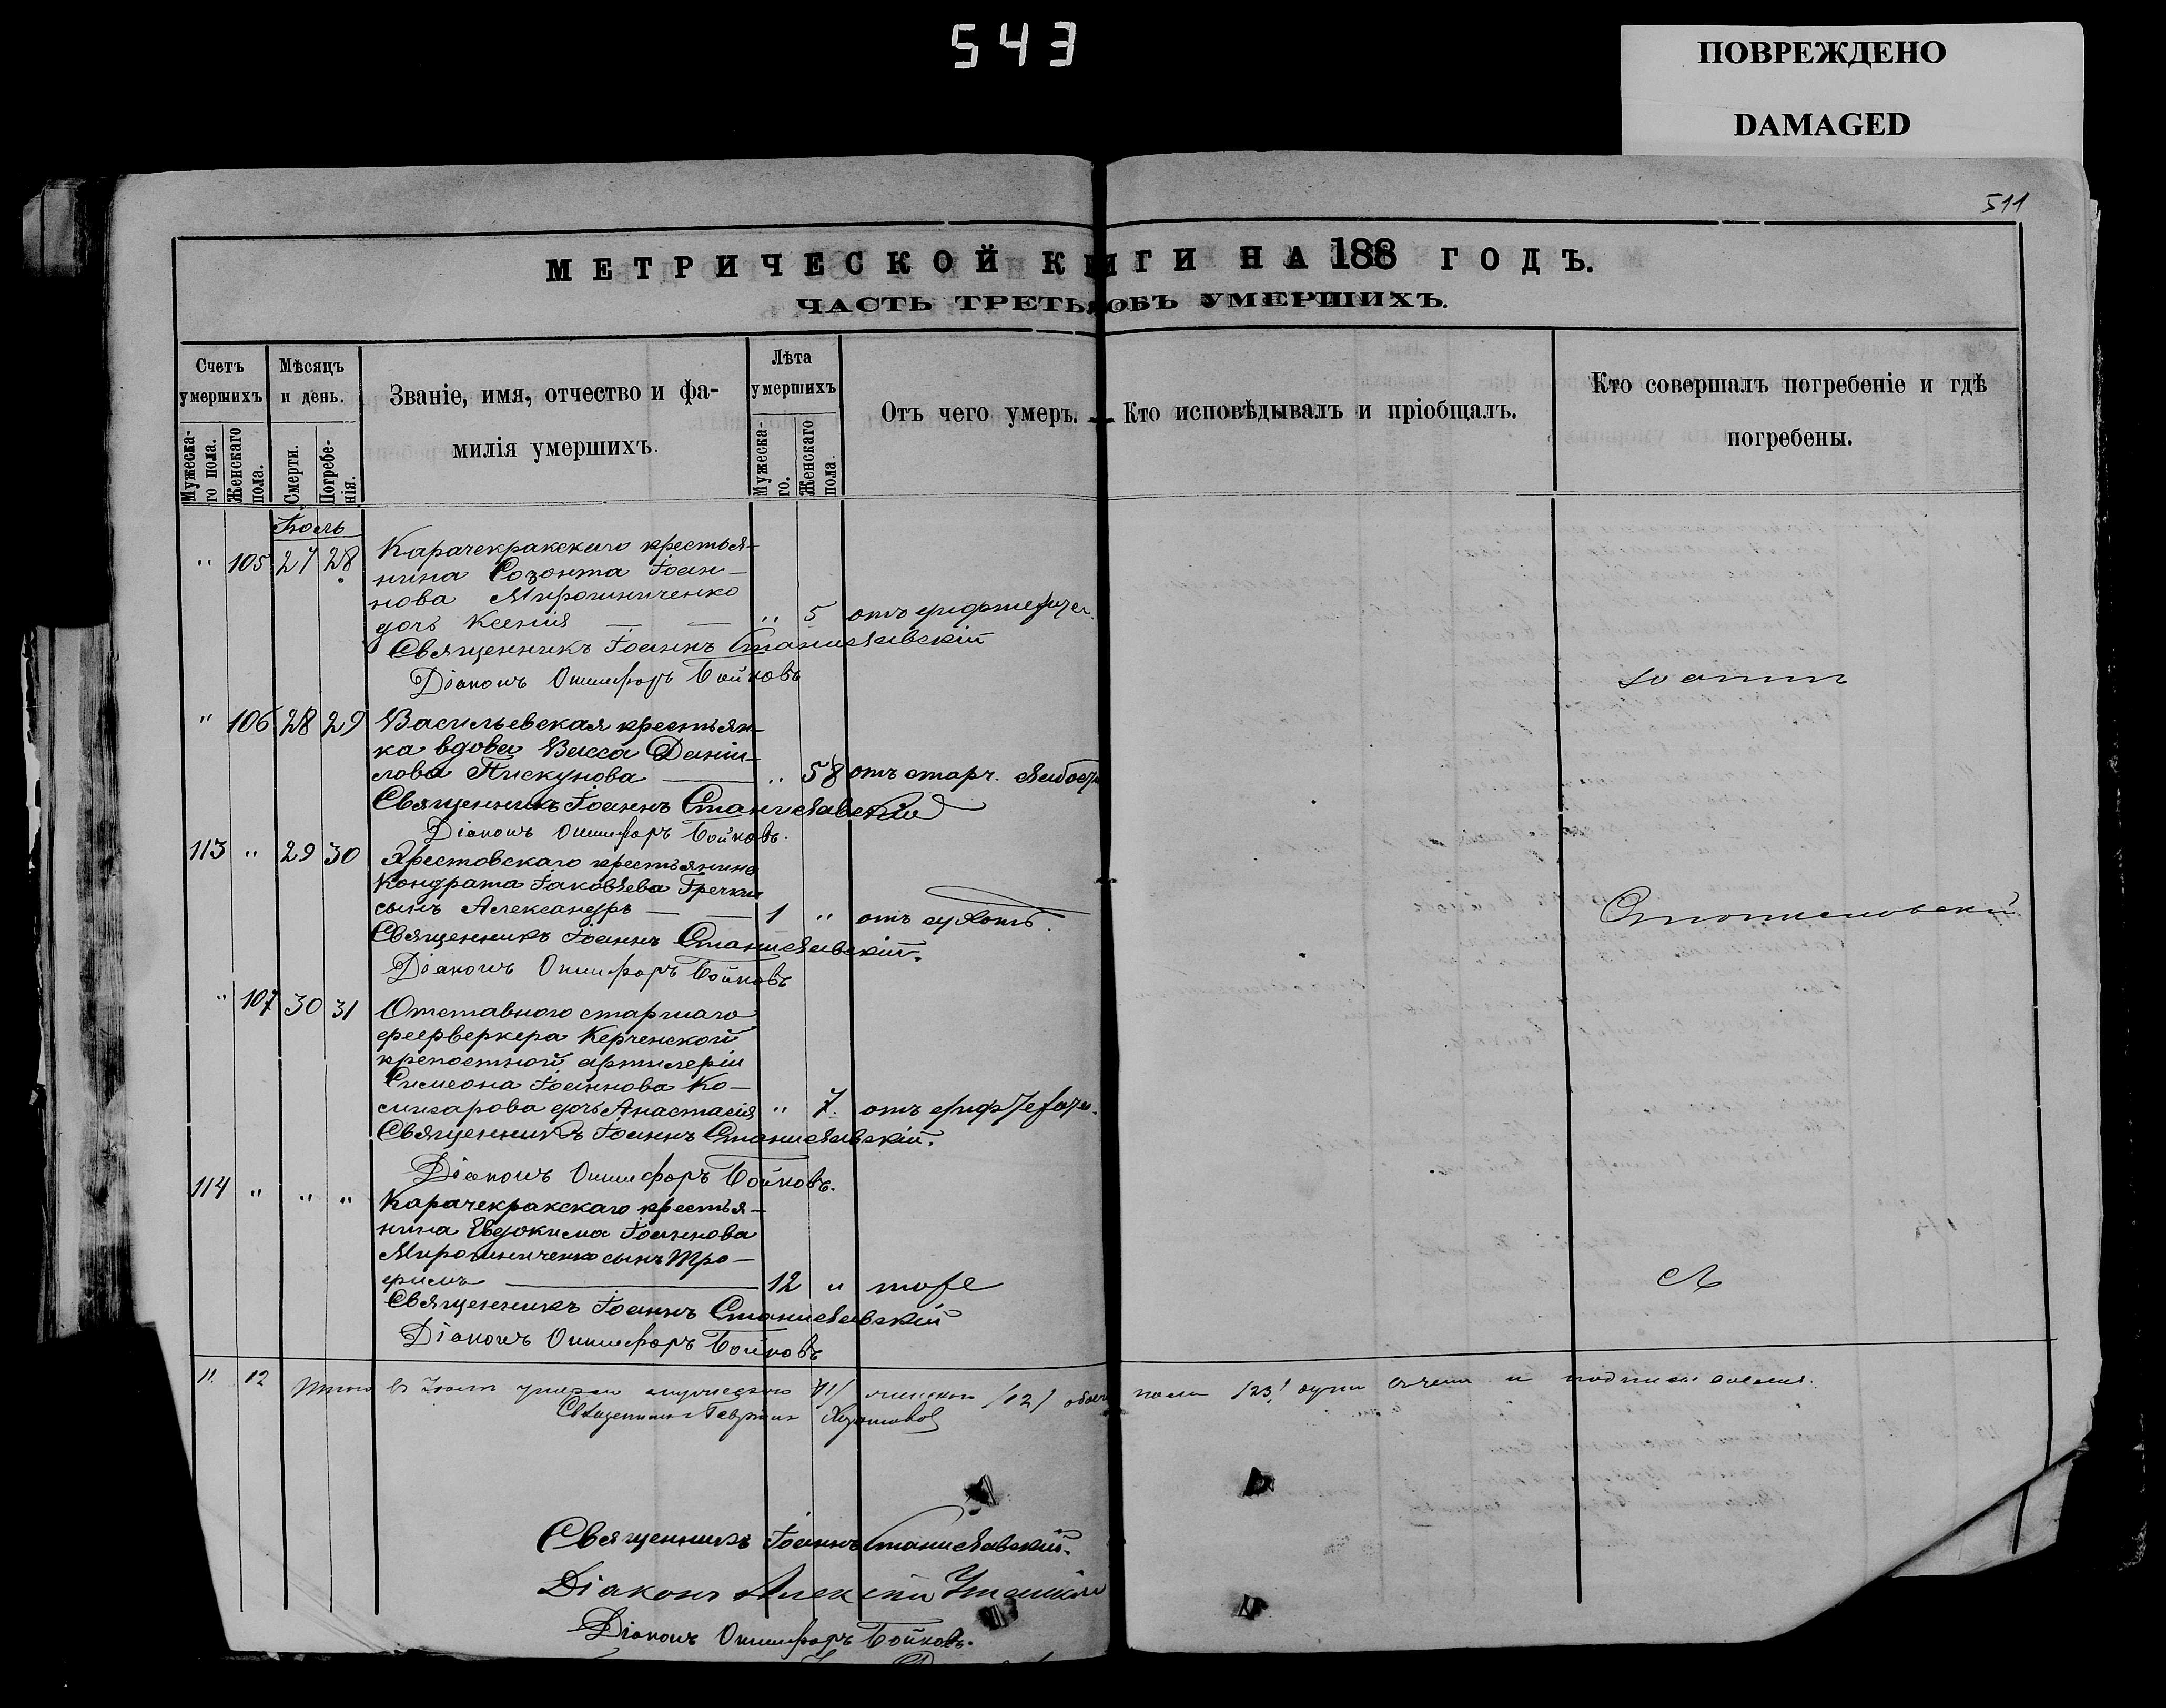 543
ПОВРЕЖДЕНО
DAMAGED
511
МЕТРИЧЕСКОЙ КНИГИ НА 188 ГОДЪ.
ЧАСТЬ ТРЕТЬЯ ОБЪ УМЕРШИХЪ.
Счетъ умершихъ
Мужескаго пола.
Женскаго пола.
Мѣсяцъ и день.
Смерти.
Погребенія.
Званіе, имя, отчество и фамилія умершихъ.
Лѣта умершихъ
Мужескаго.
Женскаго пола.
Отъ чего умеръ.
Кто исповѣдывалъ и пріобщалъ.
Кто совершалъ погребеніе и гдѣ погребены.
Іюль
" 105 27 28 Карачекракскаго крестья-
нина Созонта Іоан-
нова Мирошниченко
дочь Ксенія — — " 5 отъ
Священникъ Іоаннъ Станиславскій
Діаконъ Онисифоръ Бойковъ
Іоаннъ
" 106 28 29 Васильевская крестьян-
ка вдова Васса Даніи-
лова Пискунова — " 58 отъ старч.
Священникъ Іоаннъ Станиславскій
Діаконъ Онисифоръ Бойковъ.
113 " 29 30 крестьянина
Кондрата Іаковлева Гречки
сынъ Александръ — — 1 " отъ
Священникъ Іоаннъ Станиславскій.
Діаконъ Онисифоръ Бойковъ
" 107 30 31 Отставного старшаго
феерверкера Керченской
крепостной артилеріи
Симеона Іоаннова Ко-
дочь Анастасія " 7. отъ
Священникъ Іоаннъ Станиславскій.
Діаконъ Онисифоръ Бойковъ.
114 " " " Карачекракскаго крестья-
нина Евдокима Іоаннова
Мирошниченко сынъ Тро-
фимъ — 12 " тоже
Священникъ Іоаннъ Станиславскій
Діаконъ Онисифоръ Бойковъ
11. 12 Итого въ умерло мужескаго /11/ женскаго /12/ обоего пола /23/ души
Священникъ
Священникъ Іоаннъ Станиславскій.
Діаконъ Алексій
Діаконъ Онисифоръ Бойковъ.